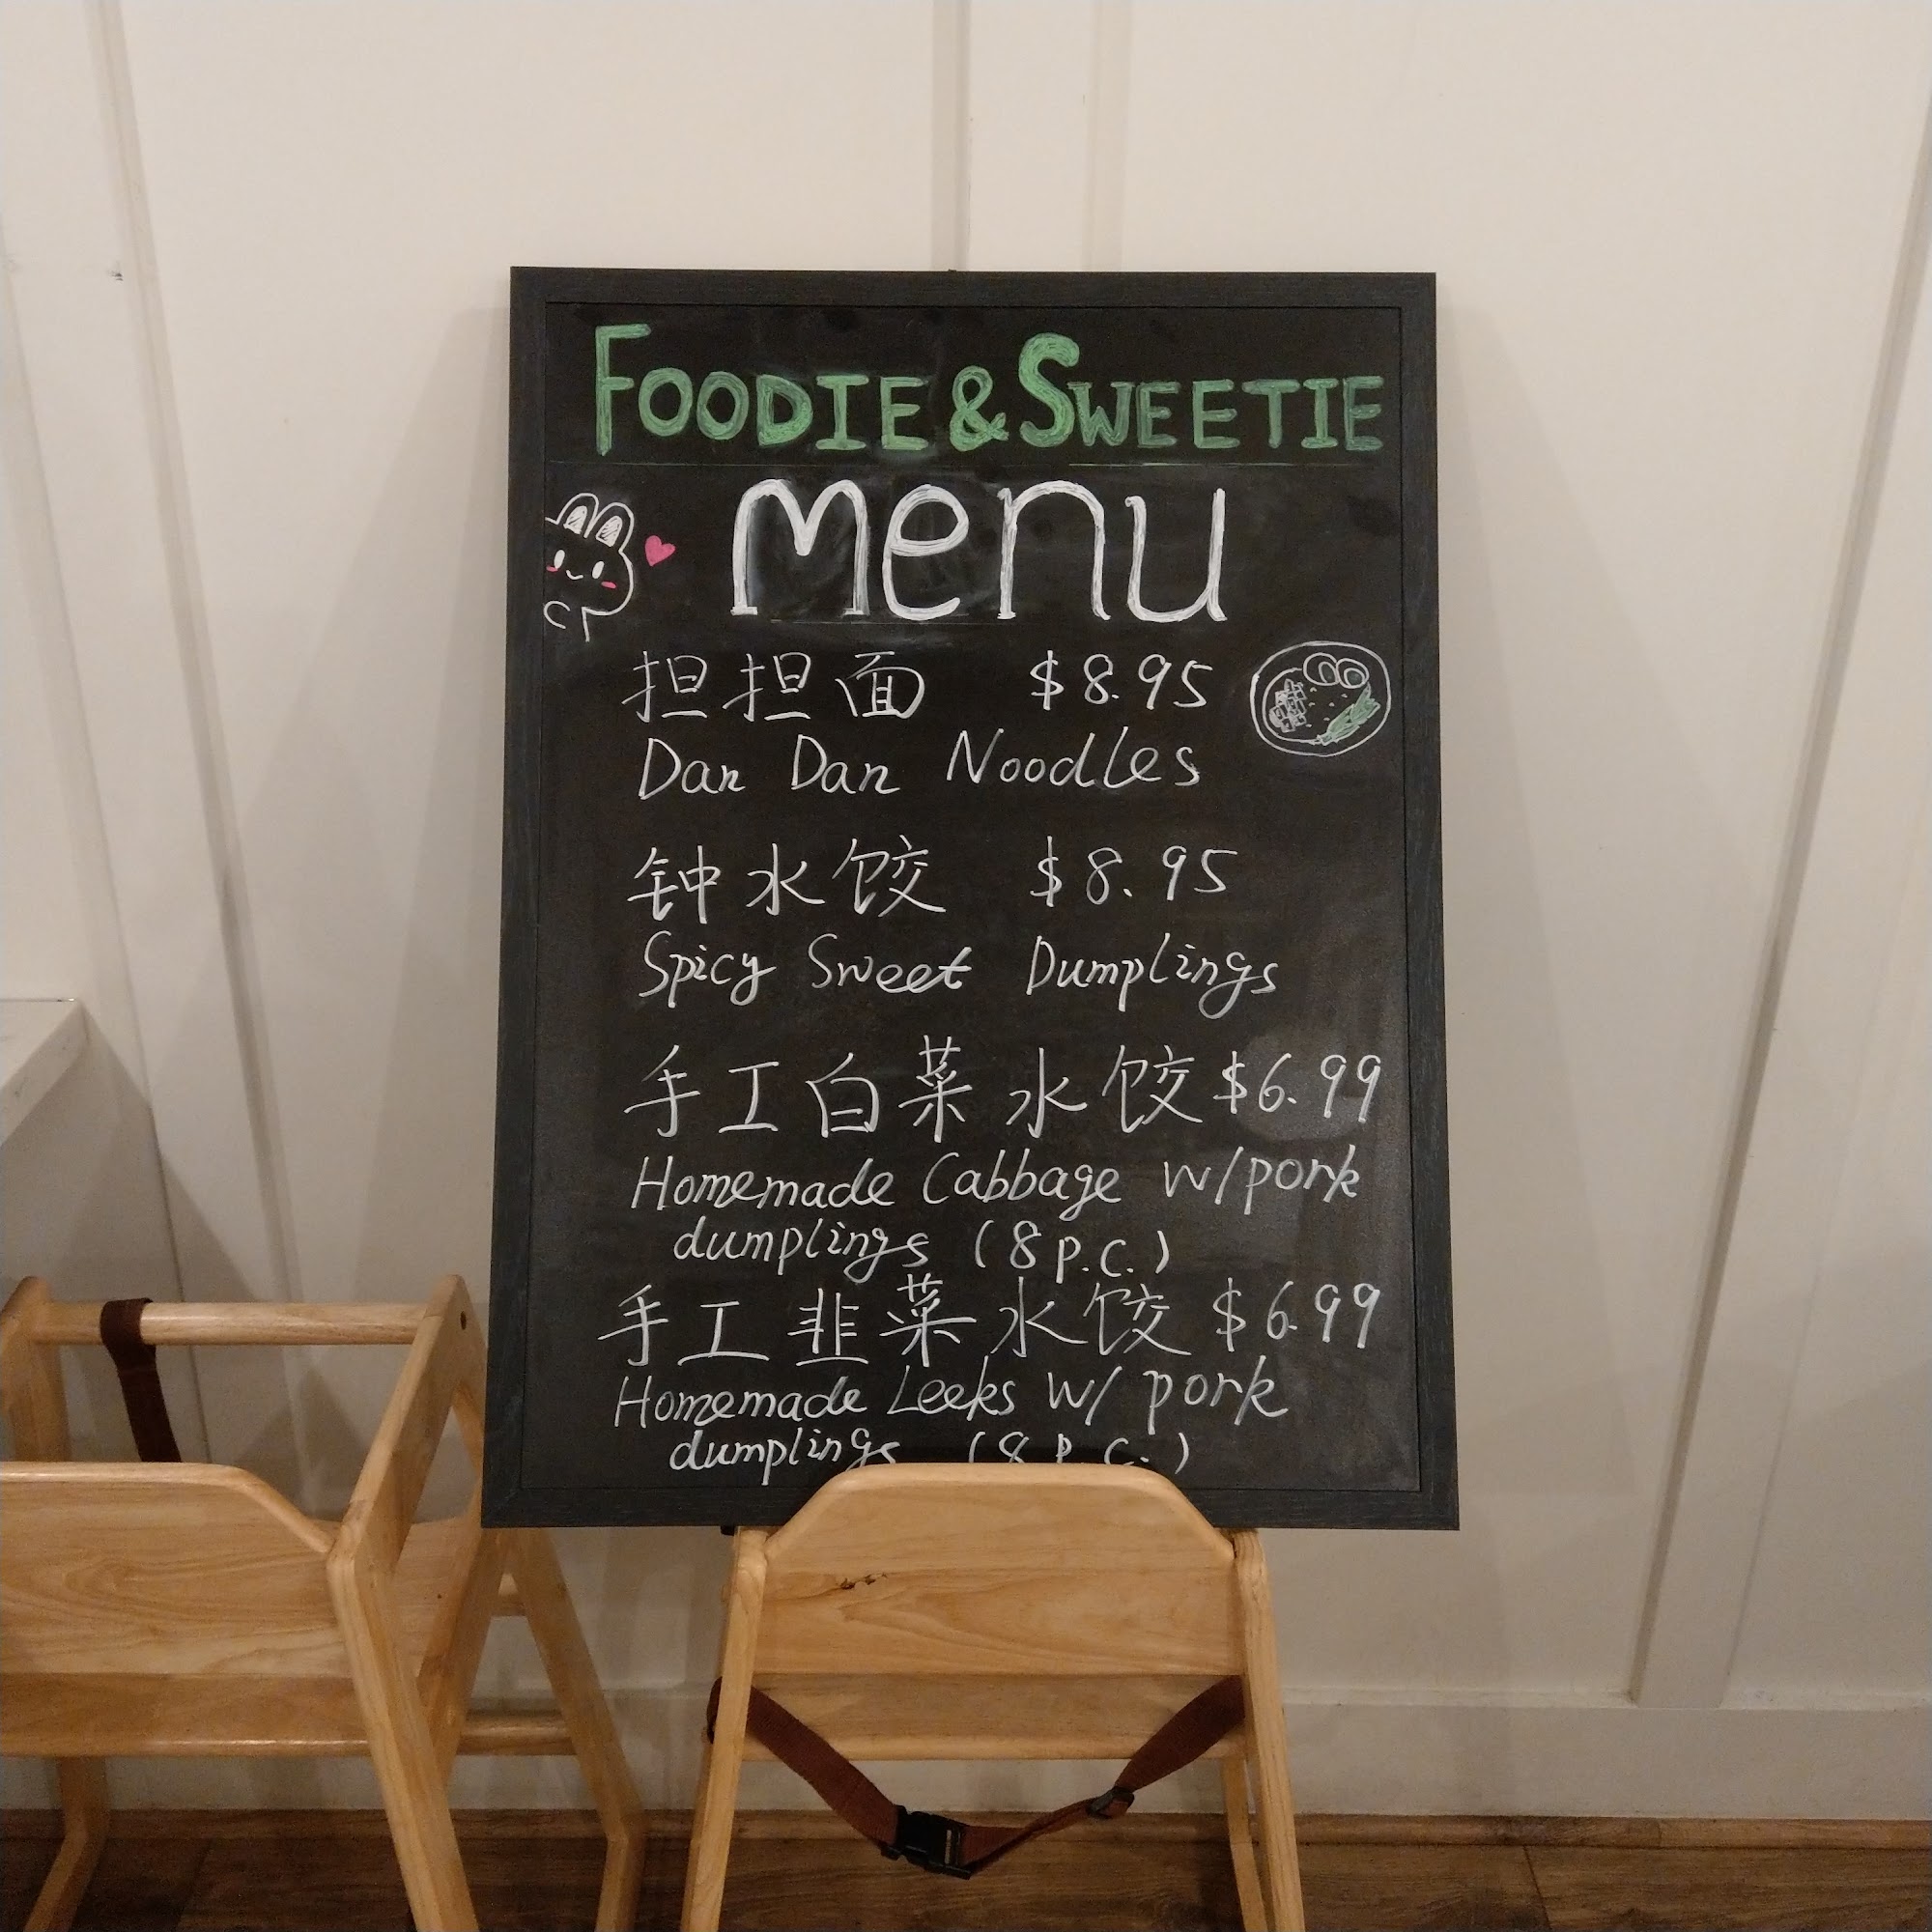 FOODIE & SWEETIE
menu
担担面 $8.95
Dan Dan Noodles
钟水饺 $8.95
Spicy Sweet Dumplings
手工白菜水饺 $6.99
Homemade Cabbage w/pork
dumplings (8 p.c.)
手工韭菜水饺 $6.99
Homemade Leeks w/ pork
dumplings (8 p.c.)